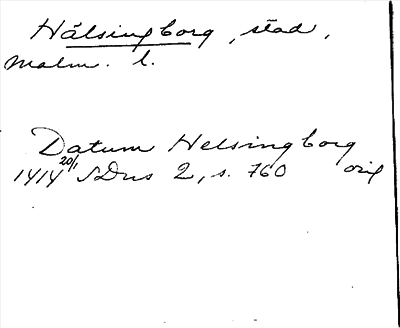 Hälsingborg, stad,
Malm. l.
Datum Helsingborg
1414 20/1 SDns 2, s. 760 orig